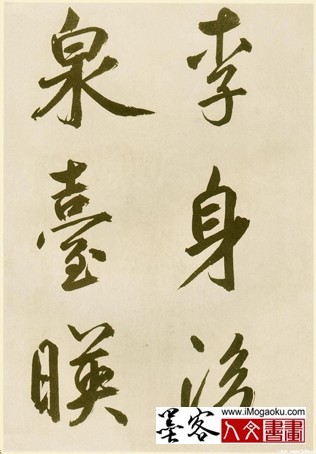 李身
泉臺暎
墨客
www.iMogaoku.com
人文書畫